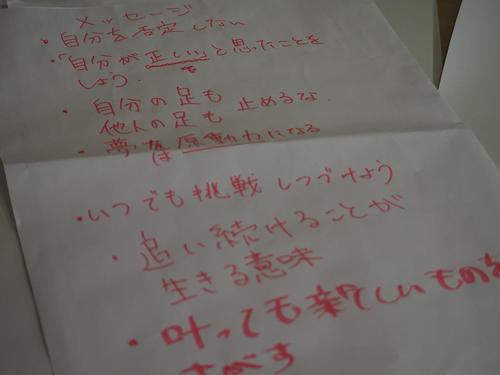 メッセージ
・自分を否定しない
・「自分が正しい」と思ったことを
しよう。
・自分の足も 止めるな
他人の足も
・夢は原動力になる
・いつでも挑戦しつづけよう
・追い続けることが
生きる意味
・叶っても新しいものを
さがす